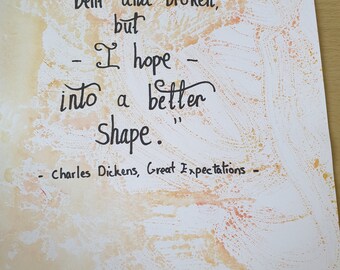 bent and broken,
but
- I hope -
into a better
shape."
- Charles Dickens, Great Expectations -